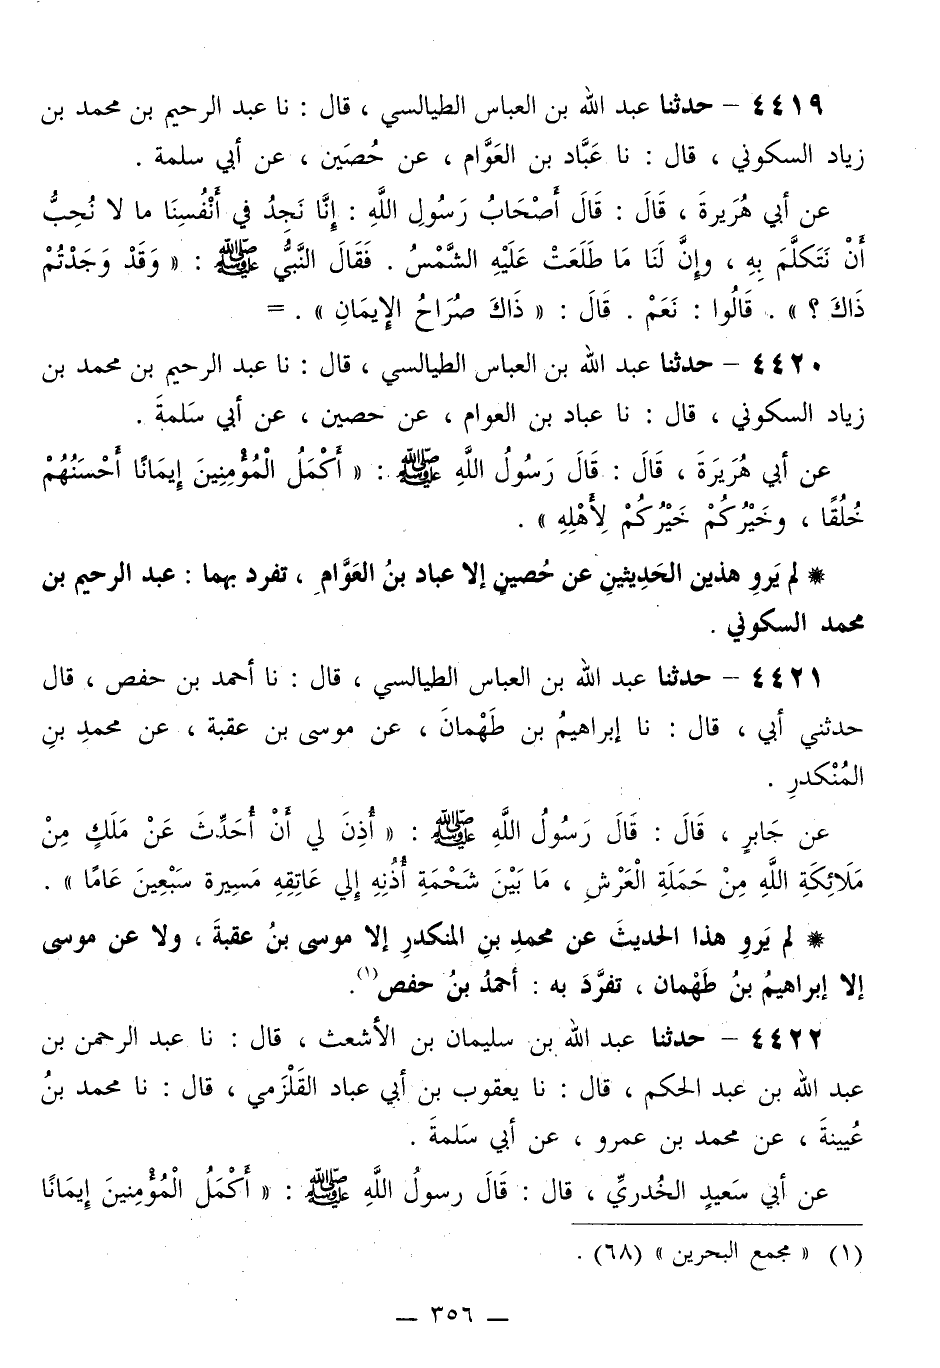 ٤٤١٩ – حدثنا عبد الله بن العباس الطيالسي ، قال : نا عبد الرحيم بن محمد بن
زياد السكوني ، قال : نا عَبَّاد بن العَوَّام ، عن حُصَين ، عن أبي سلمة .
عن أبي هُرَيرةَ ، قَالَ : قَالَ أَصْحَابُ رَسُولِ اللَّهِ : إِنَّا نَجِدُ في أَنْفُسِنَا ما لا نُحِبُّ
أَنْ نَتَكلَّمَ بِهِ ، وإِنَّ لَنَا مَا طَلَعَتْ عَلَيْهِ الشَّمْسُ . فَقَالَ النَّبيُّ ﷺ : « وَقَدْ وَجَدْتُمْ
ذَاكَ ؟ » . قَالُوا : نَعَمْ . قَالَ : « ذَاكَ صُرَاحُ الإِيمَانِ » . =
٤٤٢٠ – حدثنا عبد الله بن العباس الطيالسي ، قال : نا عبد الرحيم بن محمد بن
زياد السكوني ، قال : نا عباد بن العوام ، عن حصين ، عن أبي سَلمةَ .
عن أبي هُرَيَرَةَ ، قَالَ : قَالَ رَسُولُ اللَّهِ ﷺ : « أَكْمَلُ الْمُؤْمِنِينَ إِيمَانًا أَحْسَنُهُمْ
خُلُقًا ، وخَيْرُكُمْ خَيْرُكُمْ لِأَهْلِهِ » .
* لم يَروِ هذين الحَدِيثينِ عن حُصينٍ إلا عباد بنُ العَوَّامِ ، تفرد بهما : عبد الرحيم بن
محمد السكوني .
٤٤٢١ – حدثنا عبد الله بن العباس الطيالسي ، قال : نا أحمد بن حفص ، قال
حدثني أبي ، قال : نا إبراهيمُ بن طَهْمانَ ، عن موسى بن عقبة ، عن محمدِ بنِ
المُنْكدرِ .
عن جَابرٍ ، قَالَ : قَالَ رَسُولُ اللَّهِ ﷺ : « أُذِنَ لي أَنْ أُحَدِّثَ عَنْ مَلَكٍ مِنْ
مَلَائِكَةِ اللَّهِ مِنْ حَمَلَةِ الْعَرْشِ ، مَا بَيْنَ شَحْمَةِ أُذُنِهِ إِلي عَاتِقِهِ مَسِيرة سَبْعِينَ عَامًا » .
* لم يَروِ هذا الحديثَ عن محمدِ بنِ المنكدرِ إلا موسى بنُ عقبةَ ، ولا عن موسى
إلا إبراهيمُ بنُ طَهْمان ، تفرَّدَ به : أحمدُ بنُ حفص(١).
٤٤٢٢ – حدثنا عبد الله بن سليمان بن الأشعث ، قال : نا عبد الرحمن بن
عبد الله بن عبد الحكم ، قال : نا يعقوب بن أبي عباد القَلْزمي ، قال : نا محمد بنُ
عُيينةَ ، عن محمد بن عمرو ، عن أبي سَلمةَ .
عن أبي سَعيدٍ الخُدريِّ ، قال : قَالَ رسولُ اللَّهِ ﷺ : « أَكْمَلُ الْمُؤْمِنينَ إِيمَانًا
(١) « مجمع البحرين » (٦٨) .
— ٣٥٦ —